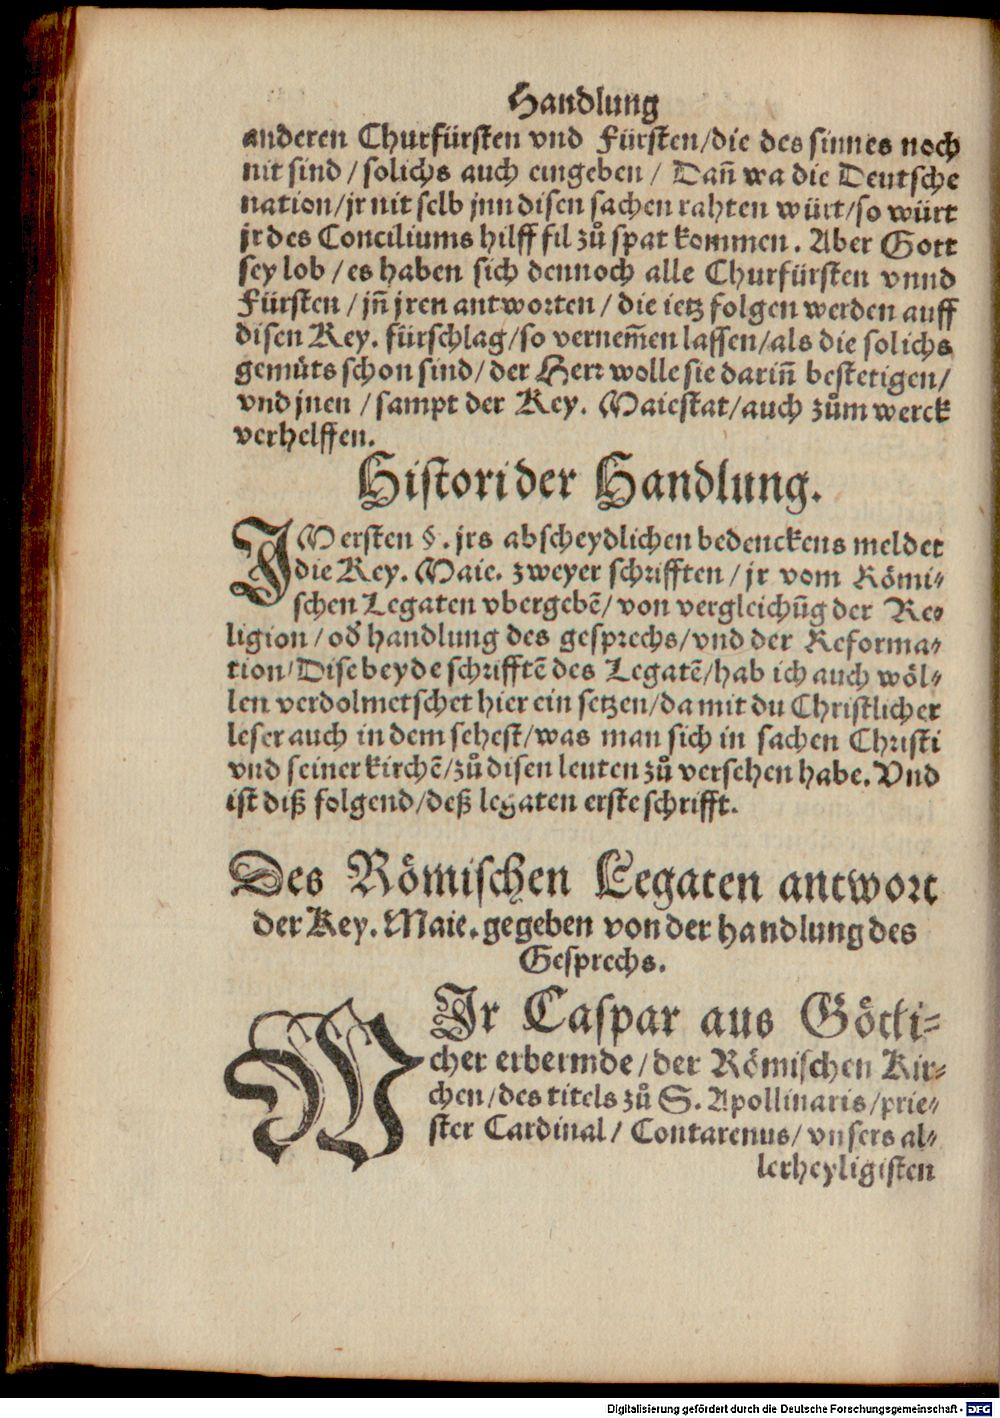 Handlung
anderen Churfürsten vnd Fürsten/die des sinnes noch
nit sind / solichs auch eingeben / Dañ wa die Deutsche
nation/jr nit selb jnn disen sachen rahten würt/so würt
jr des Conciliums hilff fil zů spat kommen. Aber Gott
sey lob /es haben sich dennoch alle Churfürsten vnnd
Fürsten / jñ jren antworten / die ietz folgen werden auff
disen Key. fürschlag/so vernem̃en lassen/als die solichs
gemüts schon sind/ der Herr wolle sie darin̄ bestetigen/
vnd jnen / sampt der Key. Maiestat/auch zům werck
verhelffen.
Histori der Handlung.
IM ersten §. jrs abscheydlichen bedenckens meldet
die Key. Maie. zweyer schrifften / jr vom Römi-
schen Legaten vbergebē/ von vergleichũg der Re-
ligion / od' handlung des gesprechs/vnd der Reforma-
tion/Dise beyde schrifftē des Legatē/hab ich auch wöl-
len verdolmetschet hier ein setzen/damit du Christlicher
leser auch in dem sehest/was man sich in sachen Christi
vnd seiner kirchē/zů disen leuten zů versehen habe. Vnd
ist diß folgend/deß legaten erste schrifft.
Des Römischen Legaten antwort
der Key. Maie. gegeben von der handlung des
Gesprechs.
WJr Caspar aus Götli-
cher erbermde/der Römischen Kir-
chen/des titels zů S. Apollinaris/prie-
ster Cardinal/ Contarenus/ vnsers al-
lerheyligisten
Digitalisierung gefördert durch die Deutsche Forschungsgemeinschaft - DFG